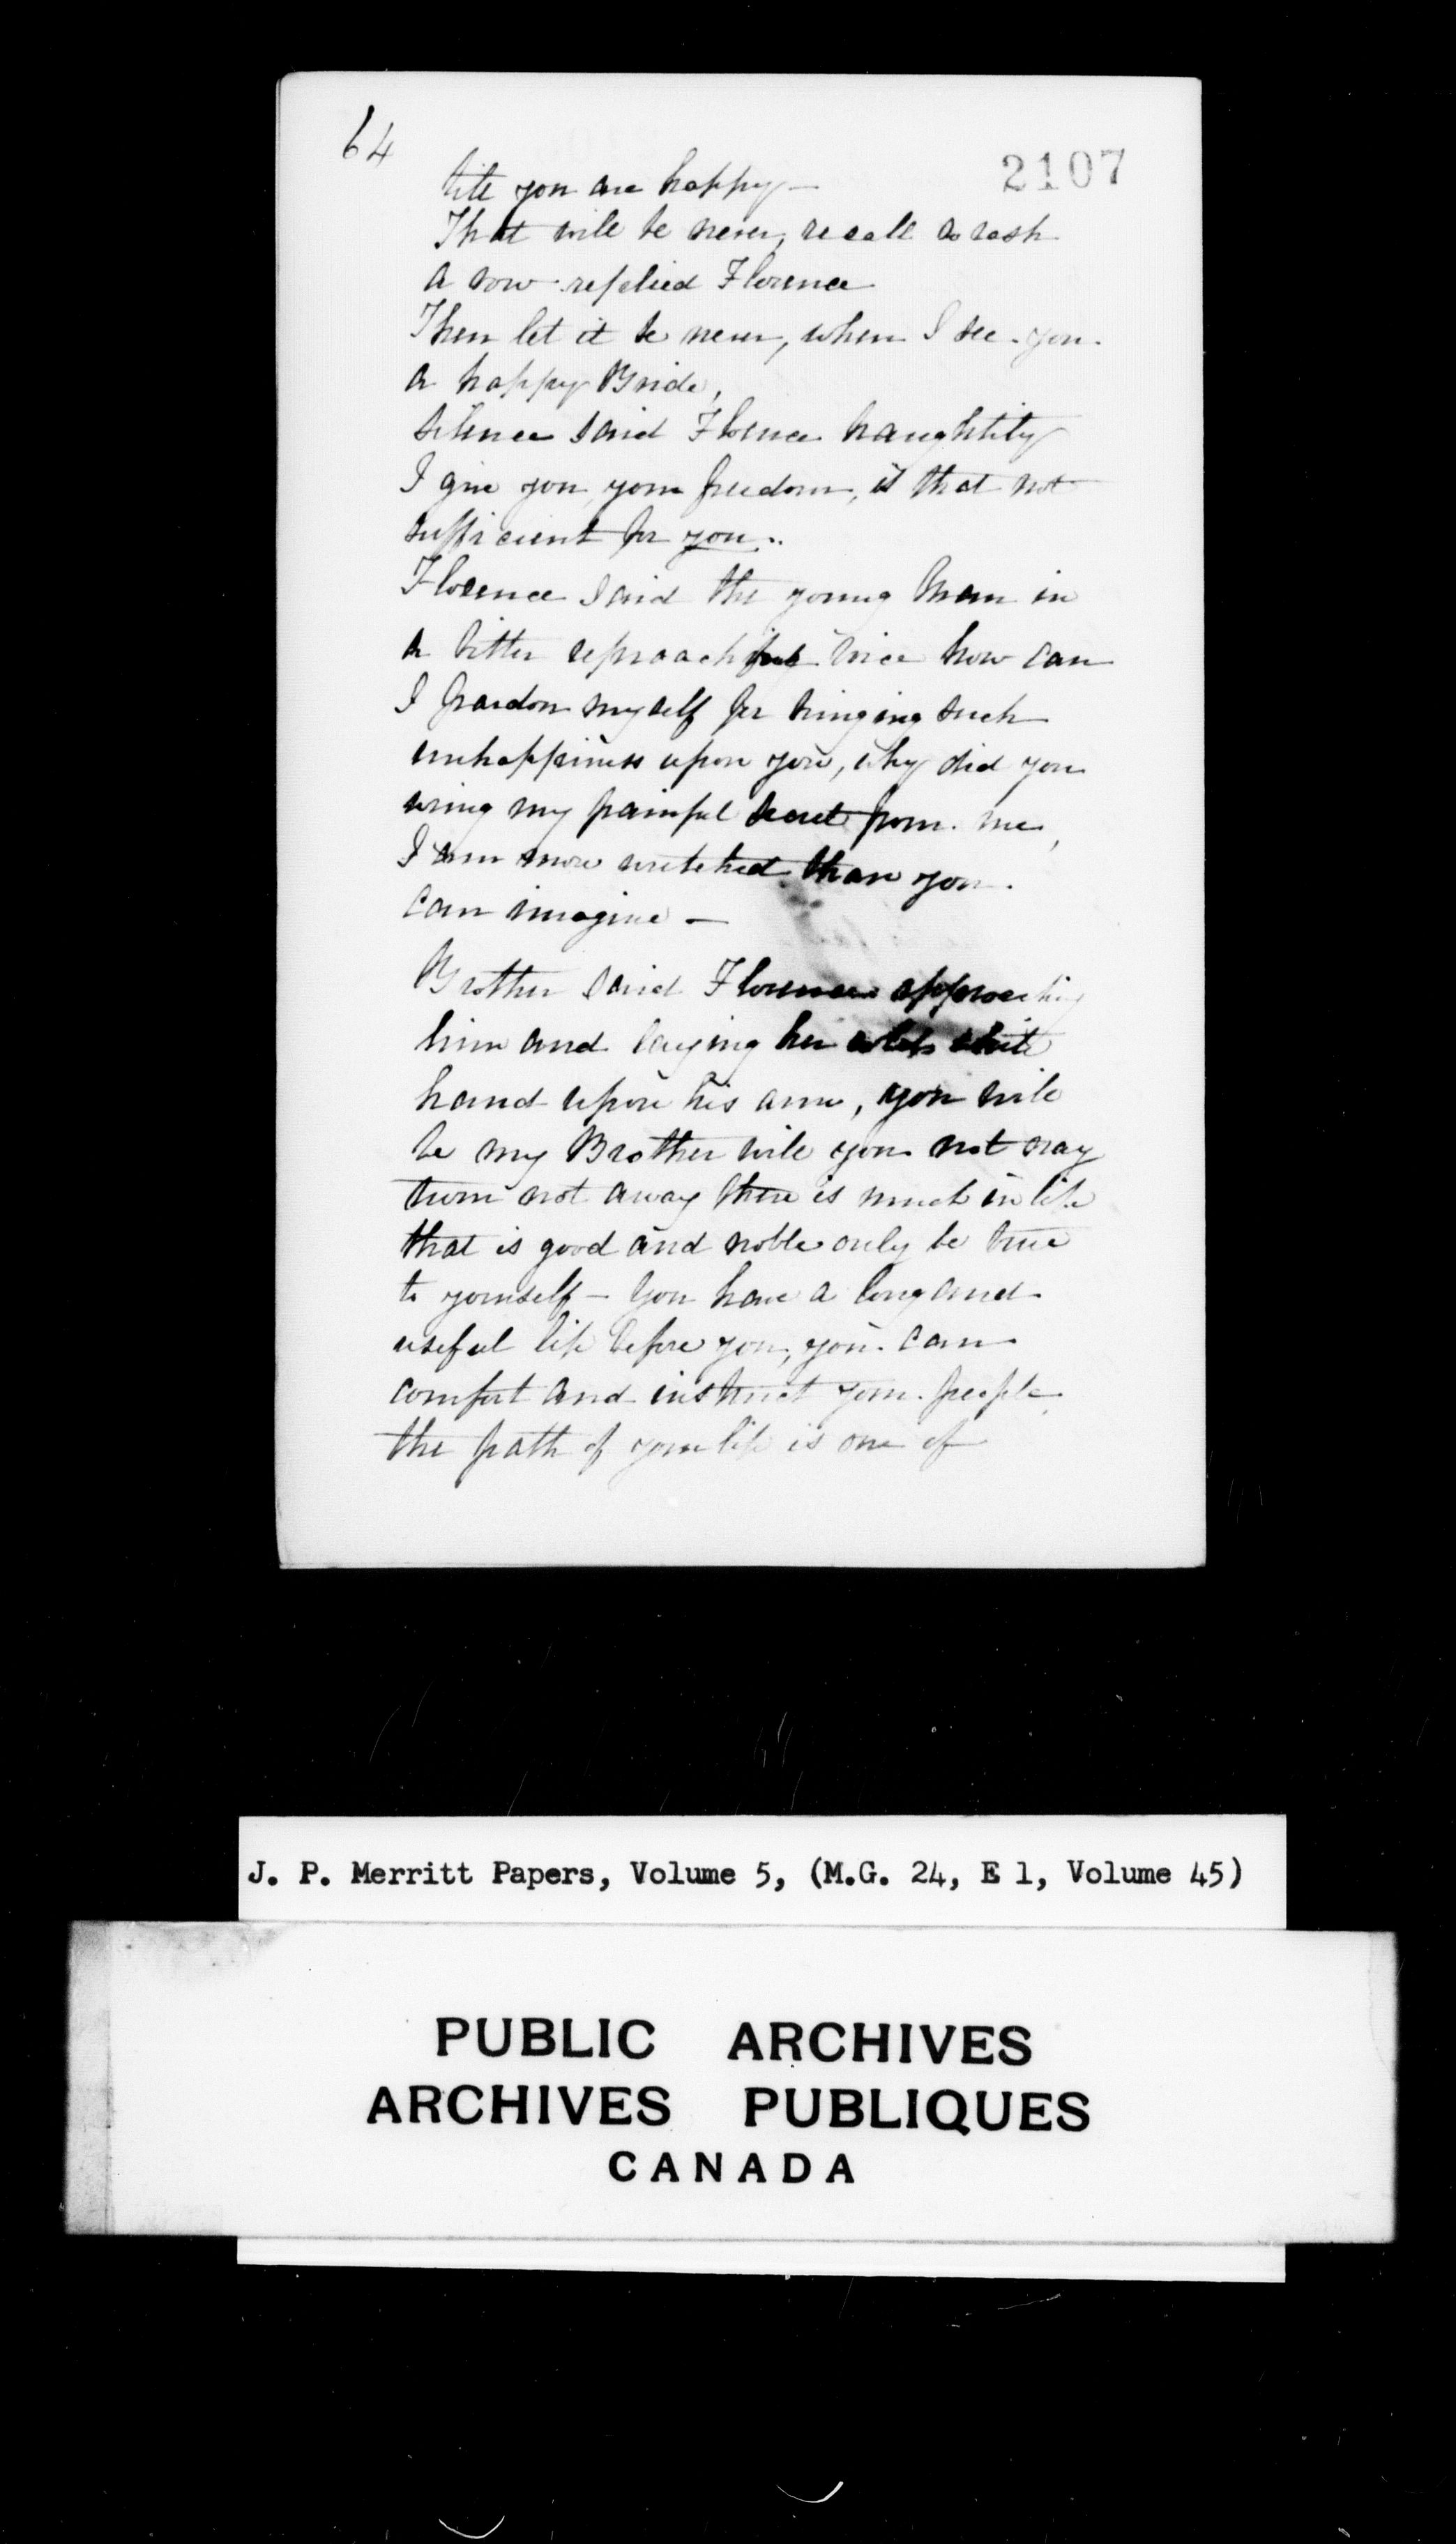 64
2107
till you are happy —
That will be never, recall so rash
a vow replied Florence
Then let it be never, when I see you
a happy Bride,
Silence said Florence haughtily
I give you, your freedom, is that not
sufficient for you..
Florence said the young man in
a bitter reproachful voice how can
I pardon myself for bringing such
unhappiness upon you, why did you
wring my painful secret from me,
I am more wretched than you
can imagine —
Brother said Florence approaching
him and laying her cold white
hand upon his arm, you will
be my Brother will you not nay
turn not away there is much in life
that is good and noble only be true
to yourself — you have a long and
useful life before you, you can
comfort and instruct your people
the path of your life is one of
J. P. Merritt Papers, Volume 5, (M.G. 24, E 1, Volume 45)
PUBLIC ARCHIVES
ARCHIVES PUBLIQUES
CANADA